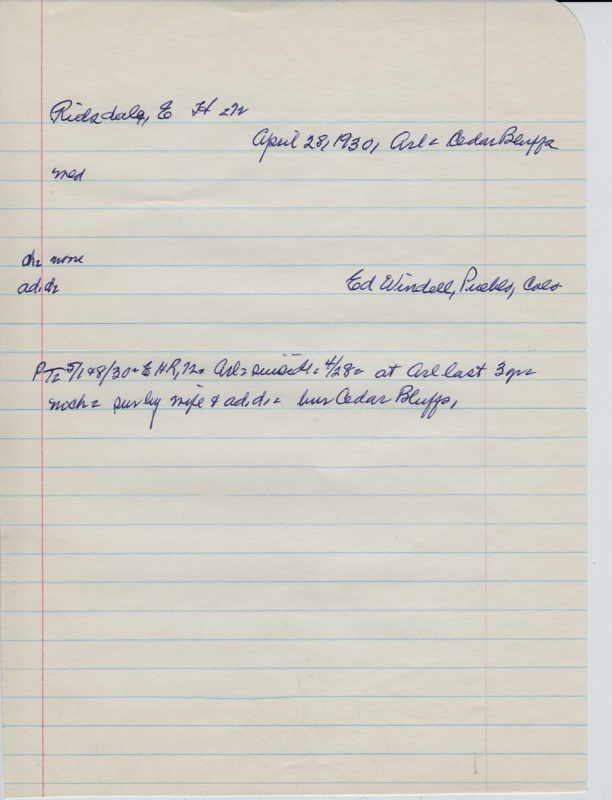 Ridsdale, E H = 72
April 28, 1930, Arl = Cedar Bluffs
med
ch = none
ad.ch Ed Windell, Pueblo, Colo
PT = 5/1 & 8/30 = E HR, 72 = Arl = suicide = 4/28 = at Arl last 3 yrs =
noch = sur by wife & ad.d. = bur Cedar Bluffs,